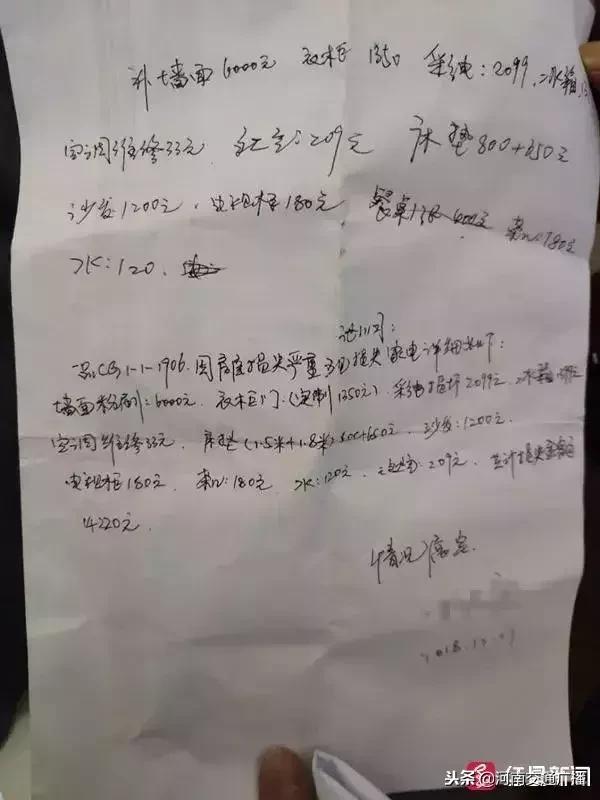 补墙面6000元 衣柜1350 彩电:2099 冰箱
空调维修33元 209元 床垫800+650元
沙发1200元 电视柜180元 餐桌 600元 180元
水:120
一品CG1-1-1906.因房屋损失严重 损失家电详细如下:
墙面粉刷:6000元 衣柜门(定制1350元) 彩电损坏2099元 冰箱
空调维修33元 床垫(1.5米+1.8米)800+650元 沙发:1200元
电视柜180元 180元 水:120元 209元 共计损失金额
14220元
情况属实
2018.12.
红星新闻
头条@河南交通广播